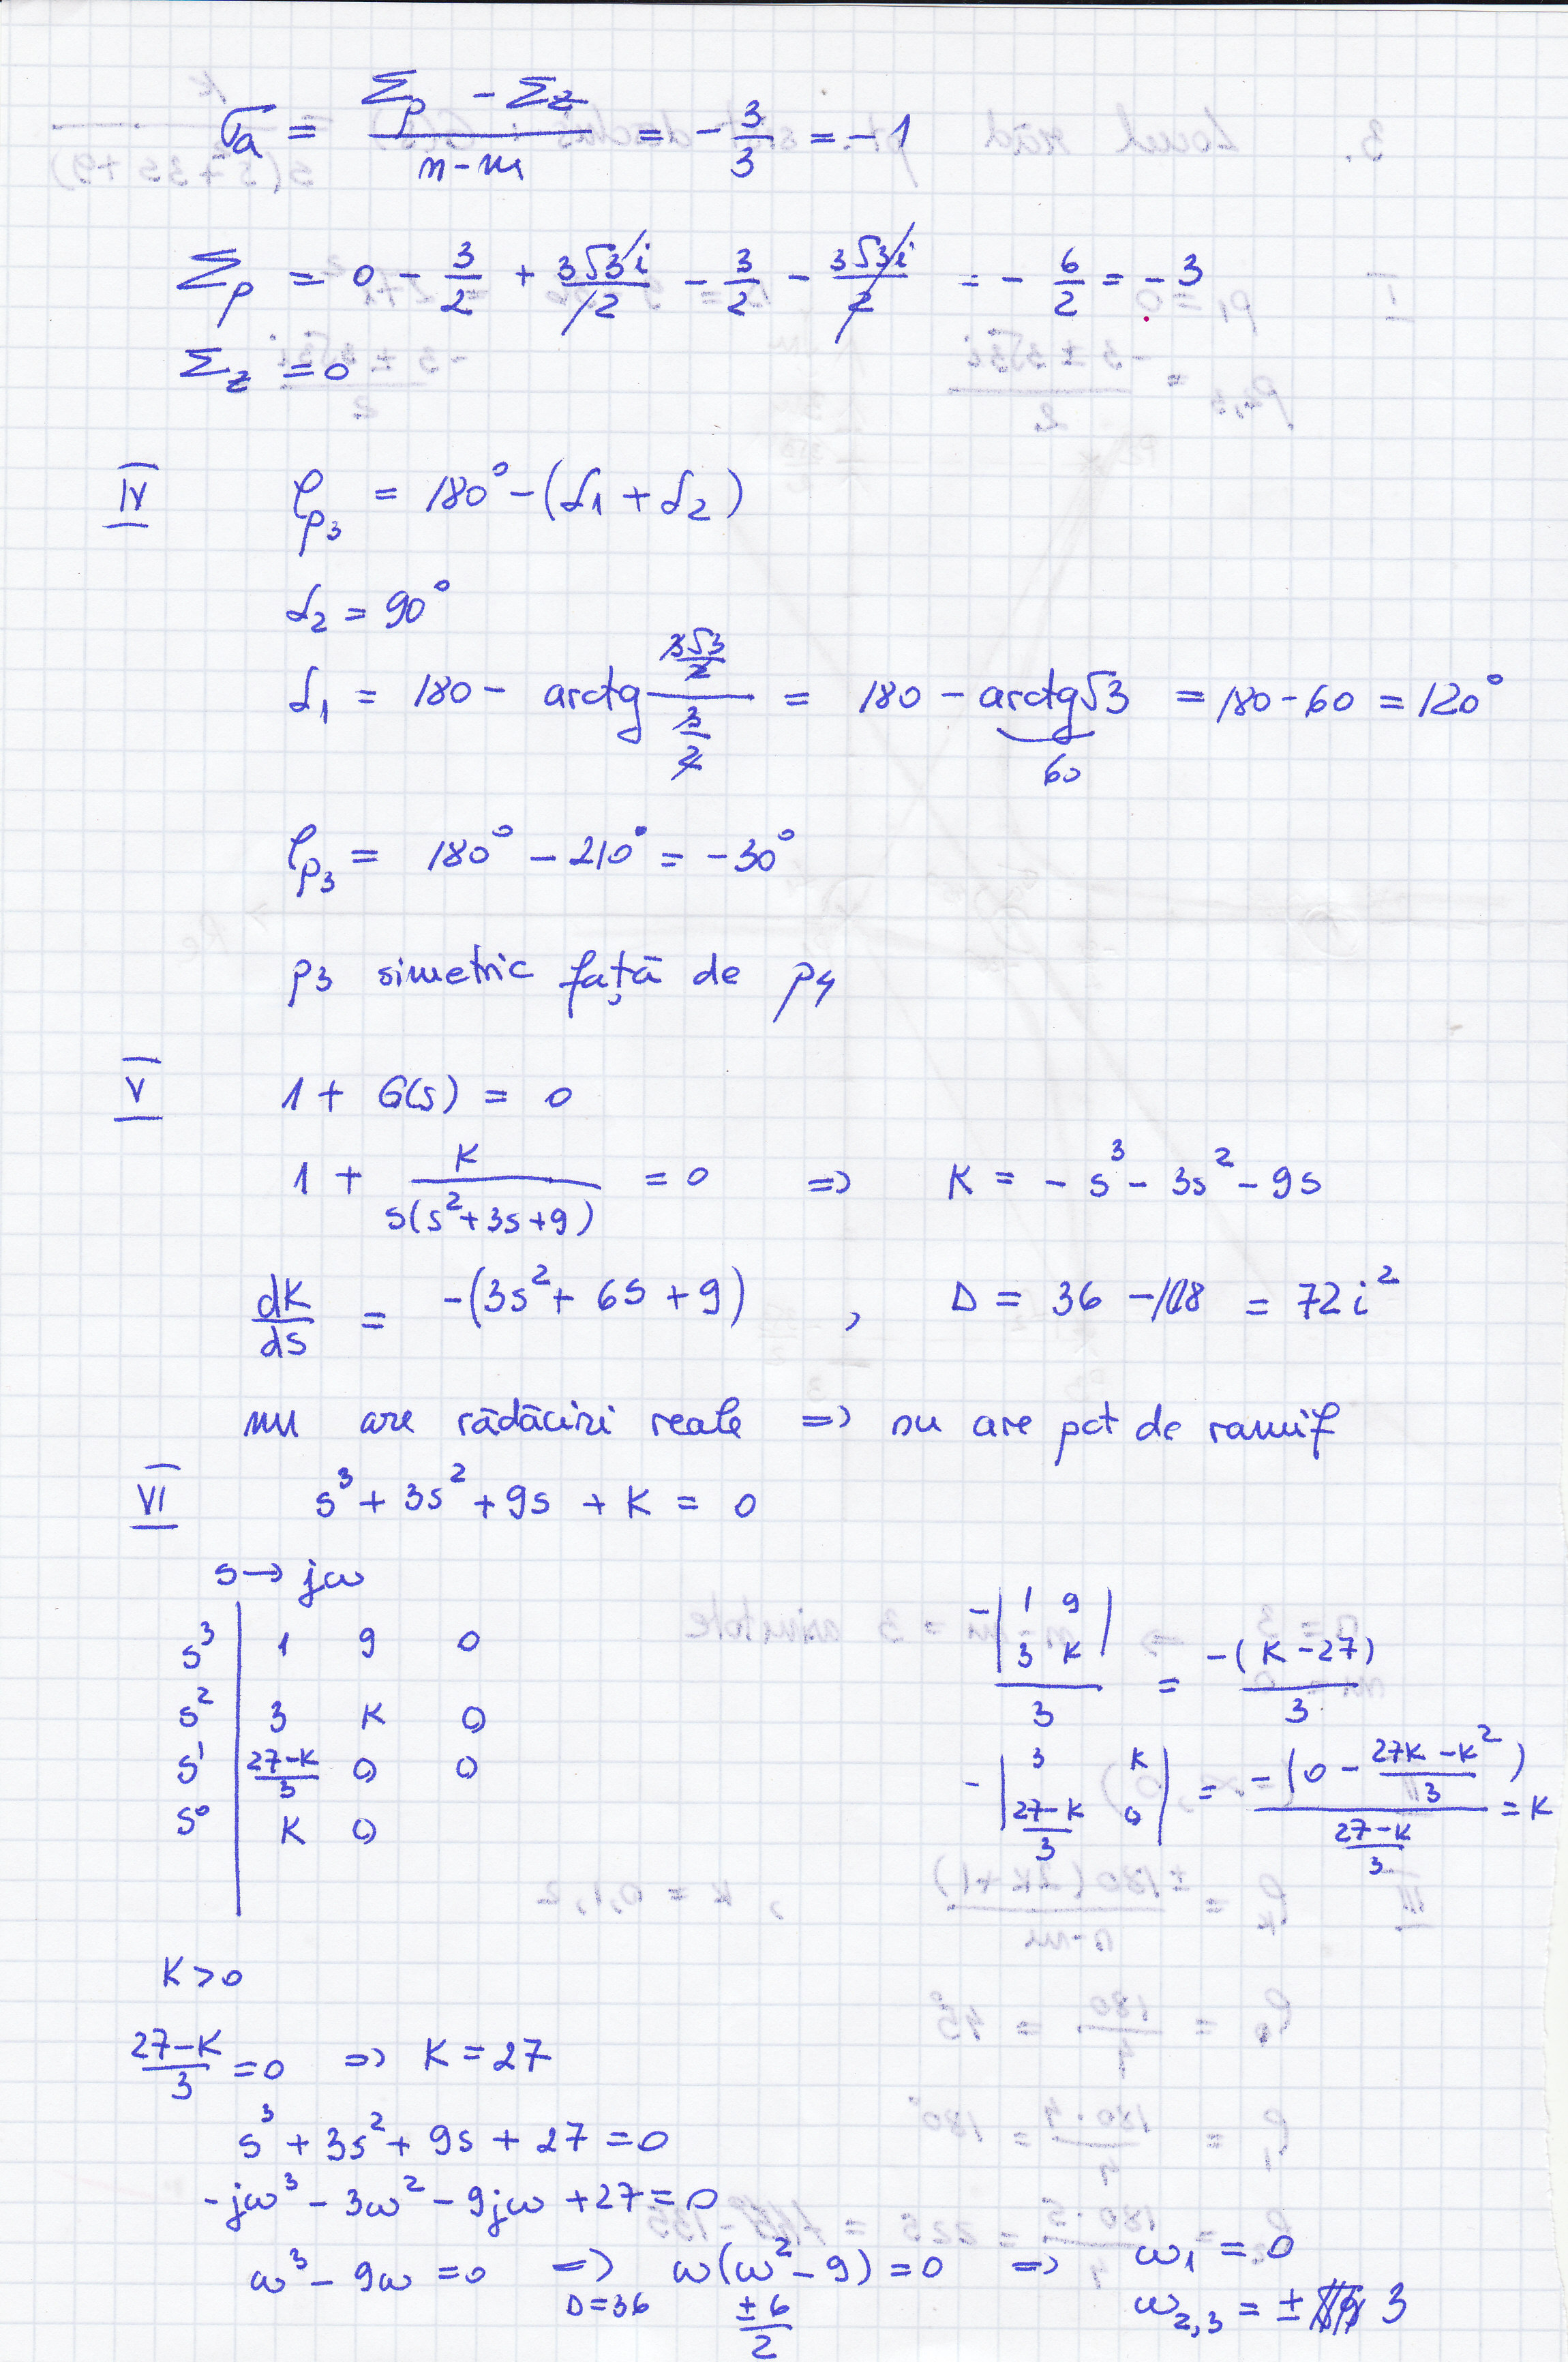 σa = (Σp - Σz)/(n-m) = -3/3 = -1
Σp = 0 - 3/2 + 3√3i/2 - 3/2 - 3√3i/2 = -6/2 = -3
Σz = 0
IV φp3 = 180° - (α1 + α2)
α2 = 90°
α1 = 180 - arctg (3√3/2)/(3/2) = 180 - arctg√3 = 180 - 60 = 120°
60
φp3 = 180° - 210° = -30°
p3 simetric față de p4
V 1 + G(s) = 0
1 + K/(s(s²+3s+9)) = 0 => K = -s³ - 3s² - 9s
dK/ds = -(3s² + 6s + 9) , Δ = 36 - 108 = 72i²
nu are rădăcini reale => nu are pct de ramif
VI s³ + 3s² + 9s + K = 0
s → jω
s³ | 1 9 0
s² | 3 K 0
s¹ | (27-K)/3 0 0
s⁰ | K 0
-|1 9; 3 K|/3 = -(K-27)/3
-|3 K; (27-K)/3 0| = -(0 - (27K-K²)/3)/((27-K)/3) = K
K>0
(27-K)/3 = 0 => K = 27
s³ + 3s² + 9s + 27 = 0
-jω³ - 3ω² - 9jω + 27 = 0
ω³ - 9ω = 0 => ω(ω² - 9) = 0 => ω1 = 0
Δ=36 ±6/2 ω2,3 = ± 3